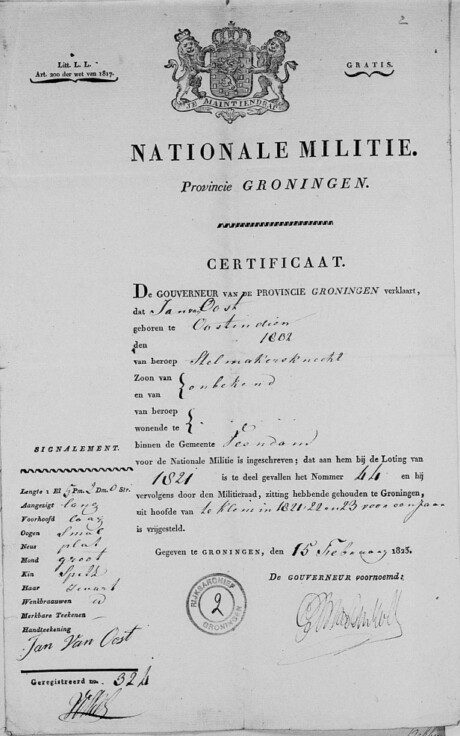 2
Litt. L. L.
Art. 200 der wet van 1817.
GRATIS.
JE MAINTIENDRAI
NATIONALE MILITIE.
Provincie GRONINGEN.
CERTIFICAAT.
DE GOUVERNEUR VAN DE PROVINCIE GRONINGEN verklaart,
dat Jan van Oost
geboren te Oostendien
den 1802
van beroep Stelmakersknecht
Zoon van
en van
onbekend
van beroep
wonende te
binnen de Gemeente Veendam
voor de Nationale Militie is ingeschreven; dat aan hem bij de Loting van
1821 is te deel gevallen het Nommer 44 en hij
vervolgens door den Militieraad, zitting hebbende gehouden te Groningen,
uit hoofde van te klein in 1821. 22 en 23 voor een jaar
is vrijgesteld.
Gegeven te GRONINGEN, den 15 February 1825.
De GOUVERNEUR voornoemd:
SIGNALEMENT.
Lengte 1 El 5 Pm. 2 Dm. 0 Str.
Aangezigt lang
Voorhoofd laag
Oogen Smal
Neus plat
Mond groot
Kin Spits
Haar Zwart
Wenkbraauwen id
Merkbare Teekenen
Handteekening
Jan Van Oost
Geregistreerd no. 324
RIJKSARCHIEF
2
GRONINGEN